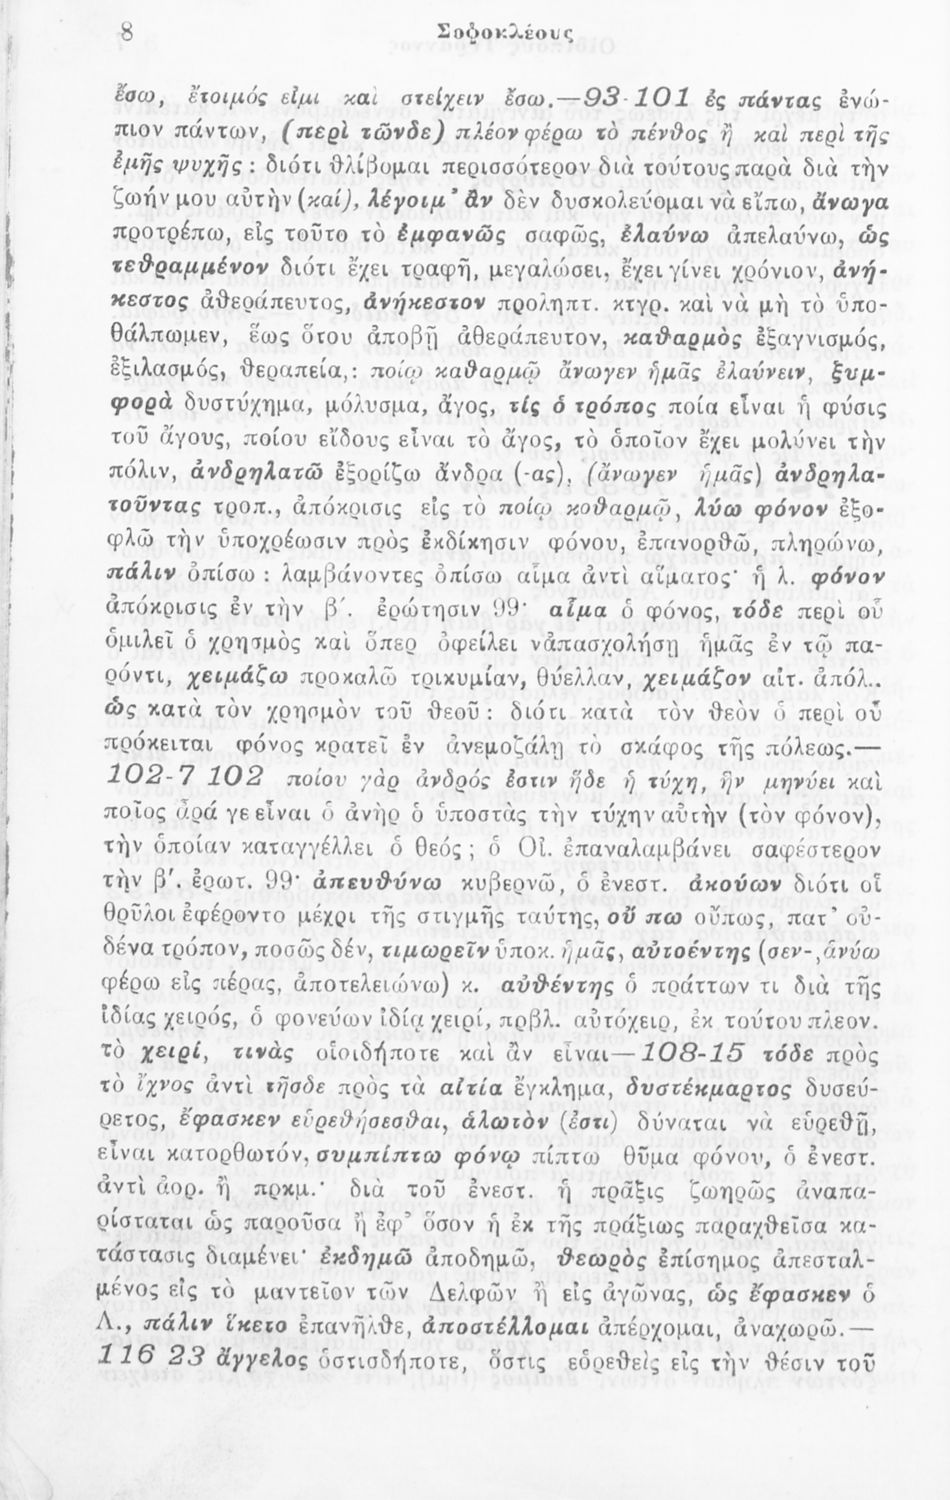 8
Σοφοκλέους
ἔσω, ἕτοιμός εἰμι καὶ στείχειν ἔσω.—93-101 ἐς πάντας ἐνώ-
πιον πάντων, (περὶ τῶνδε) πλέον φέρω τὸ πένθος ἢ καὶ περὶ τῆς
ἐμῆς ψυχῆς : διότι θλίβομαι περισσότερον διὰ τούτους παρὰ διὰ τὴν
ζωήν μου αὐτὴν (καί), λέγοιμ’ ἂν δὲν δυσκολεύομαι νὰ εἴπω, ἄνωγα
προτρέπω, εἰς τοῦτο τὸ ἐμφανῶς σαφῶς, ἐλαύνω ἀπελαύνω, ὡς
τεθραμμένον διότι ἔχει τραφῆ, μεγαλώσει, ἔχει γίνει χρόνιον, ἀνή-
κεστος ἀθεράπευτος, ἀνήκεστον προληπτ. κτγρ. καὶ νὰ μὴ τὸ ὑπο-
θάλπωμεν, ἕως ὅτου ἀποβῇ ἀθεράπευτον, καθαρμὸς ἐξαγνισμός,
ἐξιλασμός, θεραπεία,: ποίῳ καθαρμῷ ἄνωγεν ἡμᾶς ἐλαύνειν, ξυμ-
φορὰ δυστύχημα, μόλυσμα, ἄγος, τίς ὁ τρόπος ποία εἶναι ἡ φύσις
τοῦ ἄγους, ποίου εἴδους εἶναι τὸ ἄγος, τὸ ὁποῖον ἔχει μολύνει τὴν
πόλιν, ἀνδρηλατῶ ἐξορίζω ἄνδρα (-ας), (ἄνωγεν ἡμᾶς) ἀνδρηλα-
τοῦντας τροπ., ἀπόκρισις εἰς τὸ ποίῳ κοθαρμῷ, λύω φόνον ἐξο-
φλῶ τὴν ὑποχρέωσιν πρὸς ἐκδίκησιν φόνου, ἐπανορθῶ, πληρώνω,
πάλιν ὀπίσω : λαμβάνοντες ὀπίσω αἷμα ἀντὶ αἵματος· ἡ λ. φόνον
ἀπόκρισις ἐν τὴν β΄. ἐρώτησιν 99· αἷμα ὁ φόνος, τόδε περὶ οὗ
ὁμιλεῖ ὁ χρησμὸς καὶ ὅπερ ὀφείλει νἀπασχολήσῃ ἡμᾶς ἐν τῷ πα-
ρόντι, χειμάζω προκαλῶ τρικυμίαν, θύελλαν, χειμάζον αἰτ. ἀπόλ..
ὡς κατὰ τὸν χρησμὸν τοῦ θεοῦ : διότι κατὰ τὸν θεὸν ὁ περὶ οὗ
πρόκειται φόνος κρατεῖ ἐν ἀνεμοζάλῃ τὸ σκάφος τῆς πόλεως.—
102-7 102 ποίου γὰρ ἀνδρός ἐστιν ἥδε ἡ τύχη, ἣν μηνύει καὶ
ποῖος ἆρά γε εἶναι ὁ ἀνὴρ ὁ ὑποστὰς τὴν τύχην αὐτὴν (τὸν φόνον),
τὴν ὁποίαν καταγγέλλει ὁ θεός ; ὁ Οἰ. ἐπαναλαμβάνει σαφέστερον
τὴν β΄. ἐρωτ. 99· ἀπευθύνω κυβερνῶ, ὁ ἐνεστ. ἀκούων διότι οἱ
θρῦλοι ἐφέροντο μέχρι τῆς στιγμῆς ταύτης, οὔ πω οὔπως, πατ’ οὐ-
δένα τρόπον, ποσῶς δέν, τιμωρεῖν ὑποκ. ἡμᾶς, αὐτοέντης (σεν-,ἀνύω
φέρω εἰς πέρας, ἀποτελειώνω) κ. αὐθέντης ὁ πράττων τι διὰ τῆς
ἰδίας χειρός, ὁ φονεύων ἰδίᾳ χειρί, πρβλ. αὐτόχειρ, ἐκ τούτου πλεον.
τὸ χειρί, τινὰς οἱοιδήποτε καὶ ἂν εἶναι—108-15 τόδε πρὸς
τὸ ἴχνος ἀντὶ τῆσδε πρὸς τὰ αἰτία ἔγκλημα, δυστέκμαρτος δυσεύ-
ρετος, ἔφασκεν εὑρεθήσεσθαι, ἁλωτὸν (ἐστι) δύναται νὰ εὑρεθῇ,
εἶναι κατορθωτόν, συμπίπτω φόνῳ πίπτω θῦμα φόνου, ὁ ἐνεστ.
ἀντὶ ἀορ. ἢ πρκμ.· διὰ τοῦ ἐνεστ. ἡ πρᾶξις ζωηρῶς ἀναπα-
ρίσταται ὡς παροῦσα ἢ ἐφ’ ὅσον ἡ ἐκ τῆς πράξιως παραχθεῖσα κα-
τάστασις διαμένει· ἐκδημῶ ἀποδημῶ, θεωρὸς ἐπίσημος ἀπεσταλ-
μένος εἰς τὸ μαντεῖον τῶν Δελφῶν ἢ εἰς ἀγῶνας, ὡς ἔφασκεν ὁ
Λ., πάλιν ἵκετο ἐπανῆλθε, ἀποστέλλομαι ἀπέρχομαι, ἀναχωρῶ.—
116 23 ἄγγελος ὁστισδήποτε, ὅστις εὑρεθεὶς εἰς τὴν θέσιν τοῦ